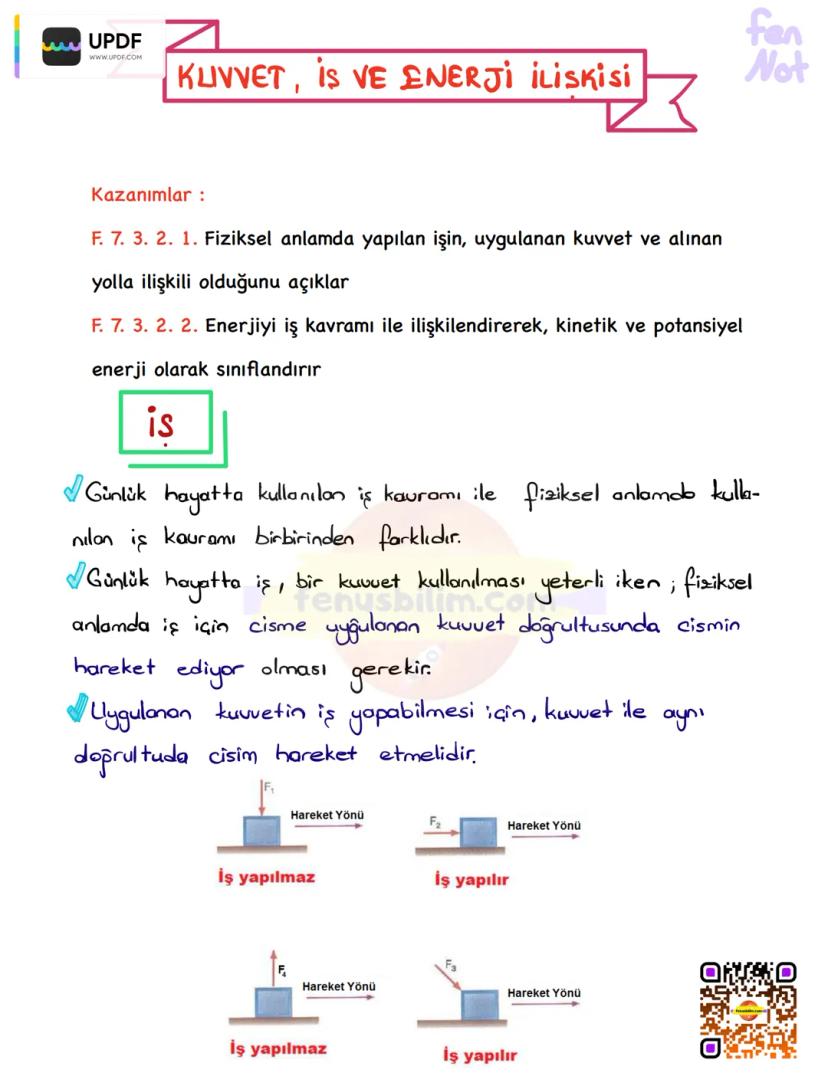 UPDF
WWW.UPDF.COM
fen
Not
KUVVET, İŞ VE ENERJİ İLİŞKİSİ
Kazanımlar :
F. 7. 3. 2. 1. Fiziksel anlamda yapılan işin, uygulanan kuvvet ve alınan
yolla ilişkili olduğunu açıklar
F. 7. 3. 2. 2. Enerjiyi iş kavramı ile ilişkilendirerek, kinetik ve potansiyel
enerji olarak sınıflandırır
İŞ
Günlük hayatta kullanılan iş kavramı ile fiziksel anlamda kulla-
nılan iş kavramı birbirinden farklıdır.
Günlük hayatta iş, bir kuvvet kullanılması yeterli iken ; fiziksel
anlamda iş için cisme uygulanan kuvvet doğrultusunda cismin
hareket ediyor olması gerekir.
fenusbilim.com
Uygulanan kuvvetin iş yapabilmesi için, kuvvet ile aynı
doğrultuda cisim hareket etmelidir.
F₁
Hareket Yönü
İş yapılmaz
F₂
Hareket Yönü
İş yapılır
F₄
Hareket Yönü
İş yapılmaz
F₃
Hareket Yönü
İş yapılır
fenusbilim.com